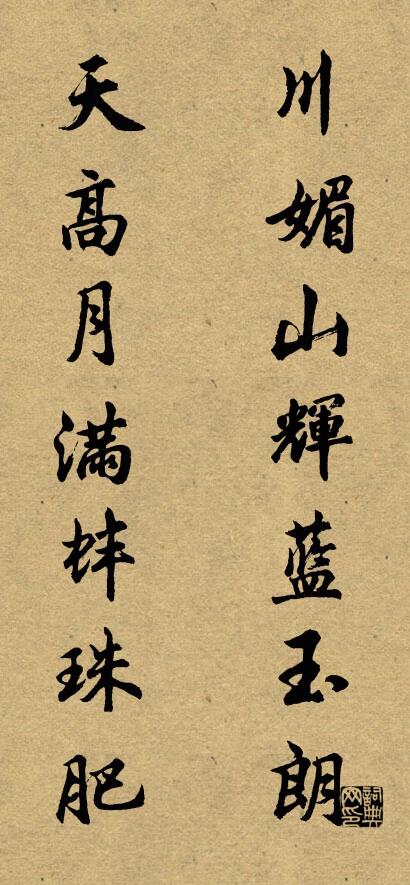 川媚山輝藍玉朗
天高月滿蚌珠肥
詞典网印